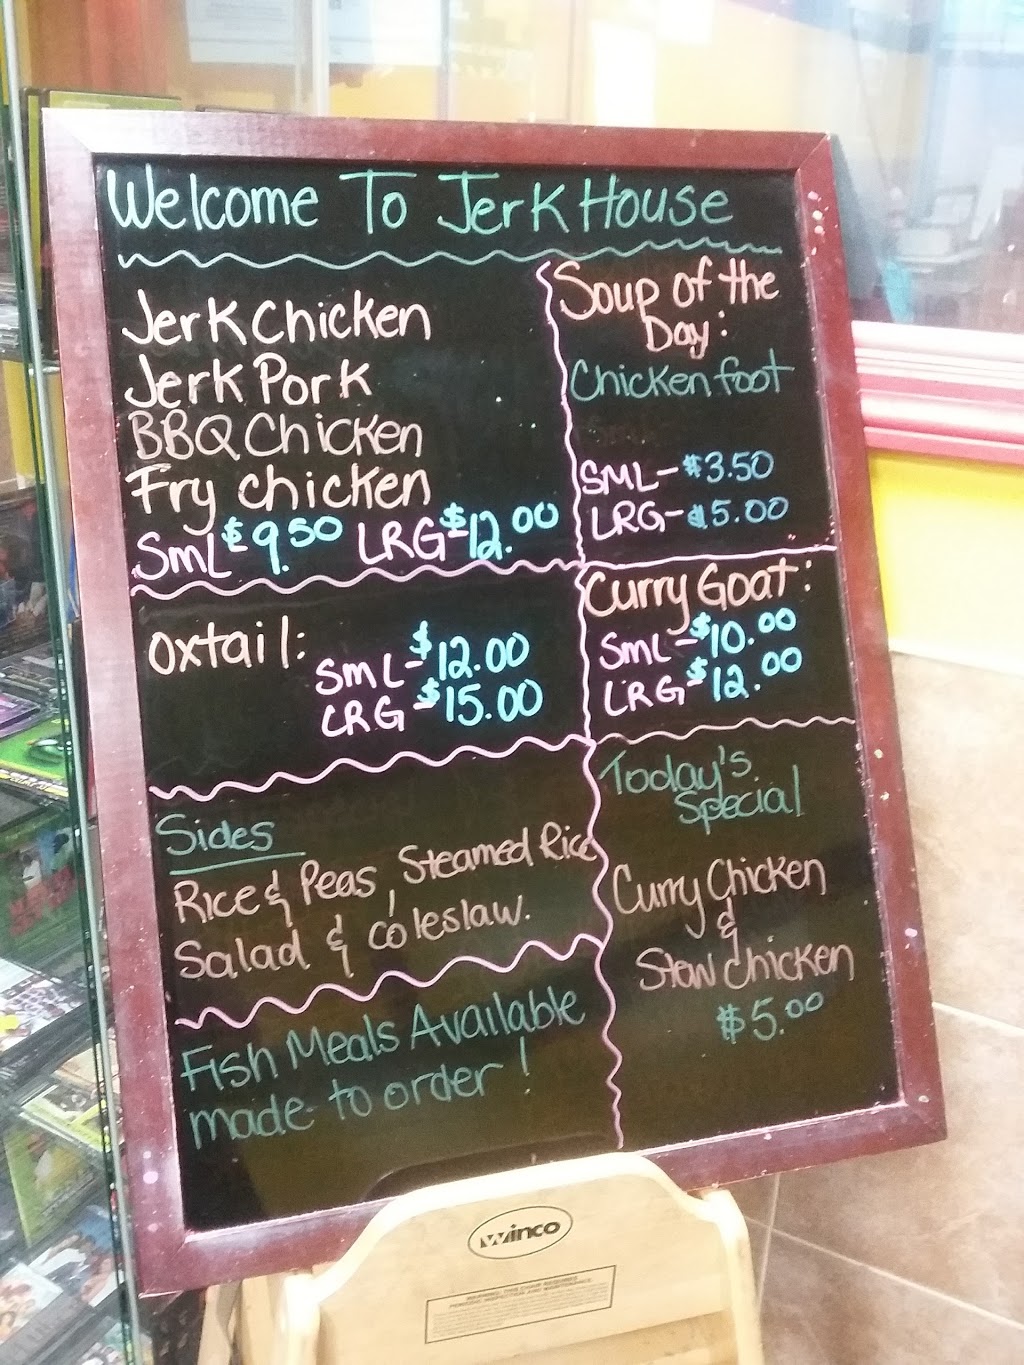 Welcome To Jerk House
Jerk Chicken
Jerk Pork
BBQ Chicken
Fry chicken
SmL $9.50 LRG-$12.00
Soup of the
Day:
Chicken foot
SML-$3.50
LRG-$5.00
Oxtail:
SmL-$12.00
LRG-$15.00
Curry Goat:
SmL-$10.00
LRG-$12.00
Sides
Rice & Peas, Steamed Rice
Salad & coleslaw.
Fish Meals Available
made to order!
Today's
Special
Curry Chicken
&
Stew Chicken
$5.00
winco